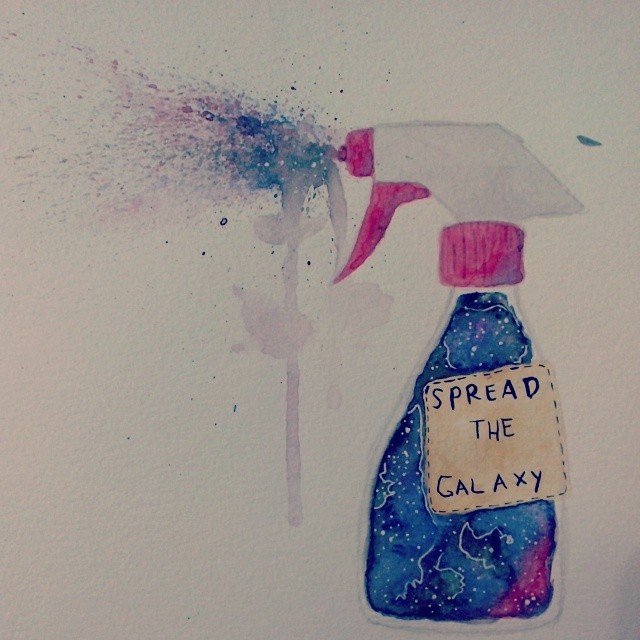 SPREAD
THE
GALAXY